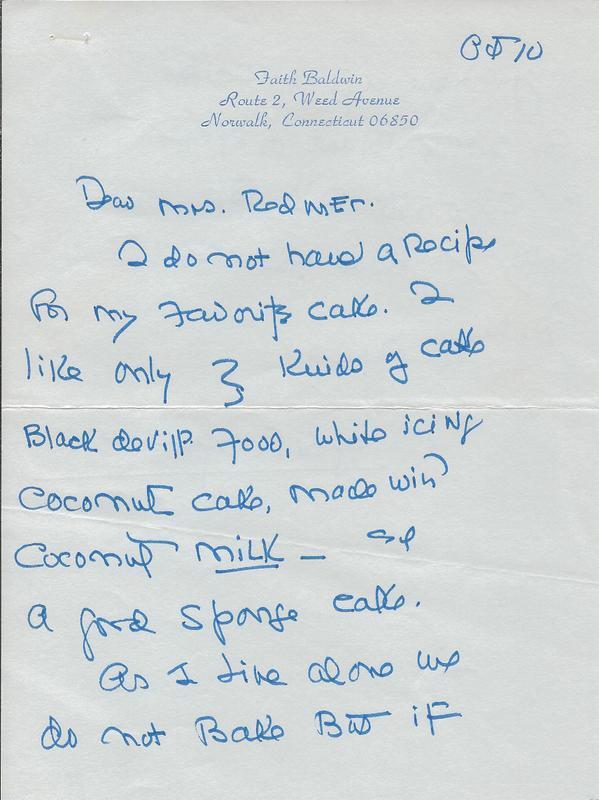 Oct 10
Faith Baldwin
Route 2, Weed Avenue
Norwalk, Connecticut 06850
Dear Mrs. Redmer.
I do not have a recipe
For my Favorite cake. I
like only 3 kinds of cake
Black devils Food, white icing
Coconut cake, made with
Coconut MILK —
a good sponge cake.
As I live alone we
do not Bake But if